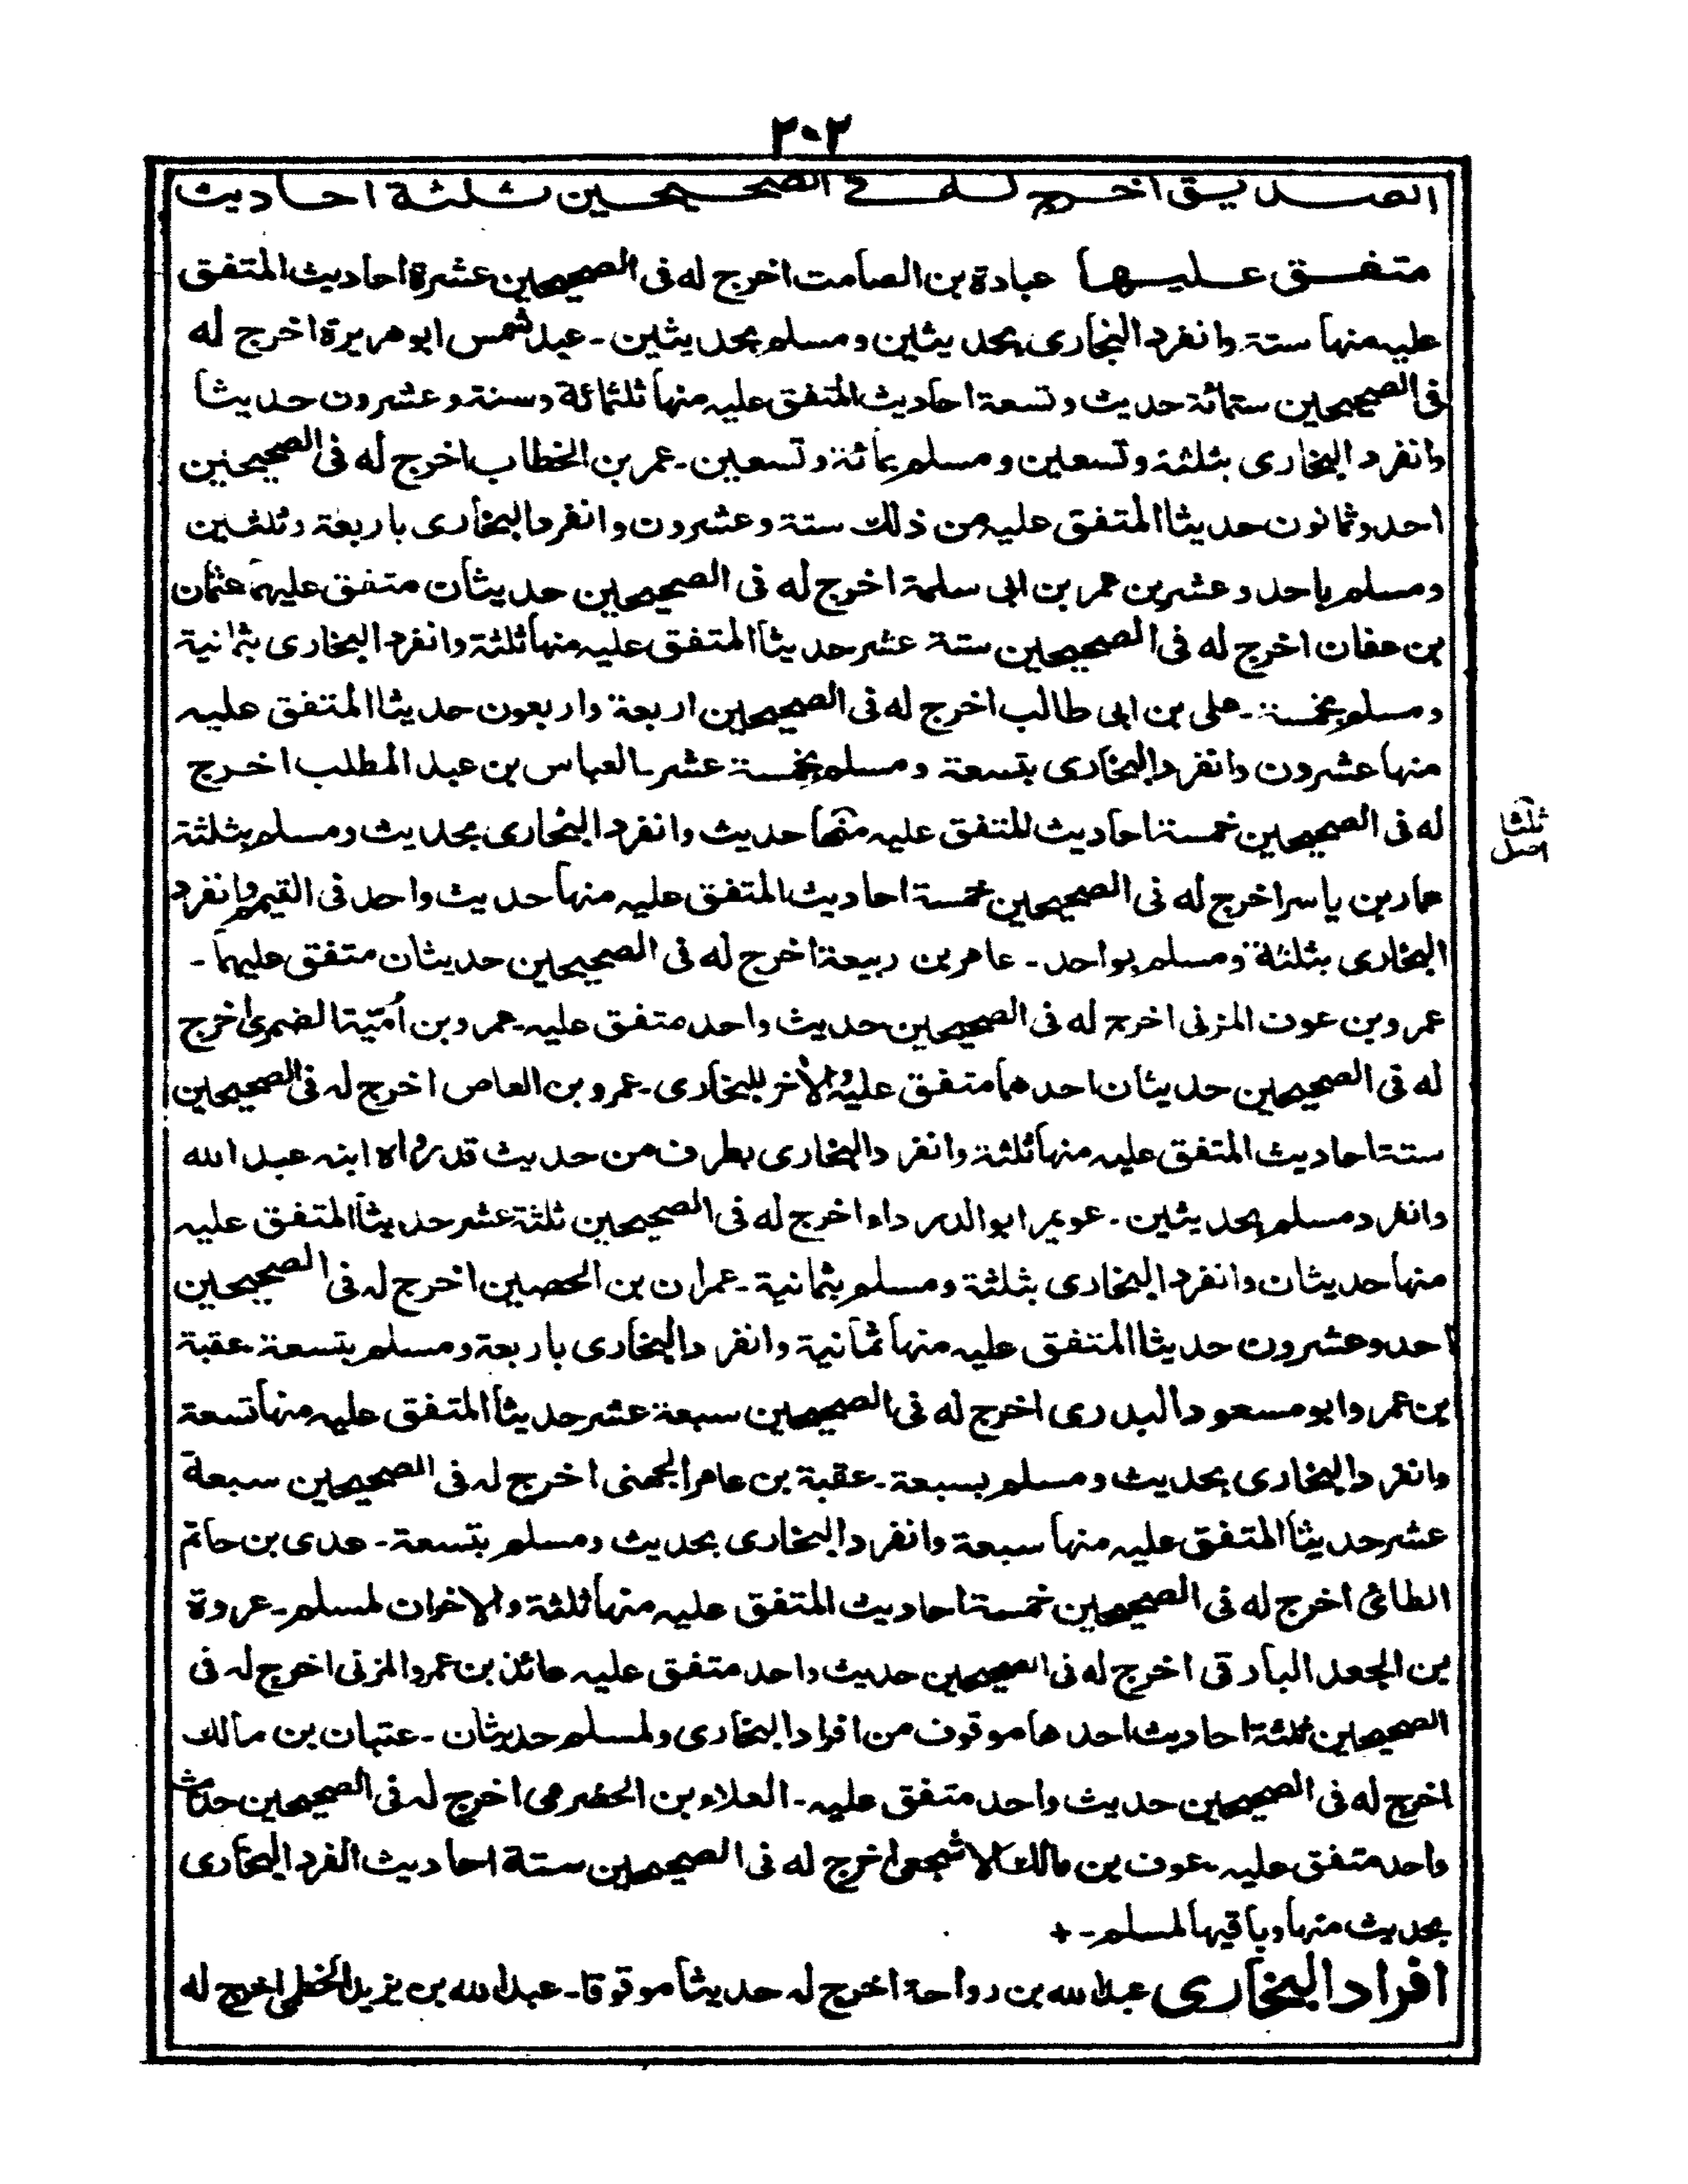 ٢٠٢
الصديق اخرج له فے الصحيحين ثلثة احاديث
متفق عليها عبادة بن الصامت اخرج له فى الصحيحين عشرة احاديث المتفق
عليه منها ستة وانفرد البخارى بحديثين ومسلم بحديثين - عبد شمس ابو هريرة اخرج له
فى الصحيحين ستمائة حديث وتسعة احاديث المتفق عليه منها ثلثمائة وستة وعشرون حديثا
وانفرد البخارى بثلثة وتسعين ومسلم بمائة وتسعين - عمر بن الخطاب اخرج له فى الصحيحين
احد وثمانون حديثا المتفق عليه من ذلك ستة وعشرون وانفرد البخارى باربعة وثلثين
ومسلم باحد وعشرين عمر بن ابى سلمة اخرج له فى الصحيحين حديثان متفق عليهما عثمان
بن عفان اخرج له فى الصحيحين ستة عشر حديثا المتفق عليه منها ثلثة وانفرد البخارى بثمانية
ومسلم بخمسة - على بن ابى طالب اخرج له فى الصحيحين اربعة واربعون حديثا المتفق عليه
منها عشرون وانفرد البخارى بتسعة ومسلم بخمسة عشر - العباس بن عبد المطلب اخرج
له فى الصحيحين خمسة احاديث المتفق عليه منها حديث وانفرد البخارى بحديث ومسلم بثلثة
ثلثا
اصل
عمار بن ياسر اخرج له فى الصحيحين خمسة احاديث المتفق عليه منها حديث واحد فى التيمم وانفرد
البخارى بثلثة ومسلم بواحد - عامر بن ربيعة اخرج له فى الصحيحين حديثان متفق عليهما -
عمرو بن عوف المزنى اخرج له فى الصحيحين حديث واحد متفق عليه - عمرو بن أميّة الضمرى اخرج
له فى الصحيحين حديثان احدهما متفق عليه والأخر للبخارى - عمرو بن العاص اخرج له فى الصحيحين
ستة احاديث المتفق عليه منها ثلثة وانفرد البخارى بطرف من حديث قد رواه ابنه عبد الله
وانفرد مسلم بحديثين - عويمر ابو الدرداء اخرج له فى الصحيحين ثلثة عشر حديثا المتفق عليه
منها حديثان وانفرد البخارى بثلثة ومسلم بثمانية - عمران بن الحصين اخرج له فى الصحيحين
احد وعشرون حديثا المتفق عليه منها ثمانية وانفرد البخارى باربعة ومسلم بتسعة - عقبة
بن عمر وابو مسعود البدرى اخرج له فى الصحيحين سبعة عشر حديثا المتفق عليه منها تسعة
وانفرد البخارى بحديث ومسلم بسبعة - عقبة بن عامر الجهنى اخرج له فى الصحيحين سبعة
عشر حديثا المتفق عليه منها سبعة وانفرد البخارى بحديث ومسلم بتسعة - عدى بن حاتم
الطائى اخرج له فى الصحيحين خمسة احاديث المتفق عليه منها ثلثة والاخران لمسلم - عروة
بن الجعد البارقى اخرج له فى الصحيحين حديث واحد متفق عليه عائذ بن عمرو المزنى اخرج له فى
الصحيحين ثلثة احاديث احدها موقوف من افراد البخارى ولمسلم حديثان - عتبان بن مالك
اخرج له فى الصحيحين حديث واحد متفق عليه - العلاء بن الحضرمى اخرج له فى الصحيحين حديث
واحد متفق عليه - عوف بن مالك الاشجعى اخرج له فى الصحيحين ستة احاديث انفرد البخارى
بحديث منها وباقيها لمسلم - +
افراد البخارى عبد الله بن رواحة اخرج له حديثا موقوفا - عبد الله بن يزيد الخطمى اخرج له